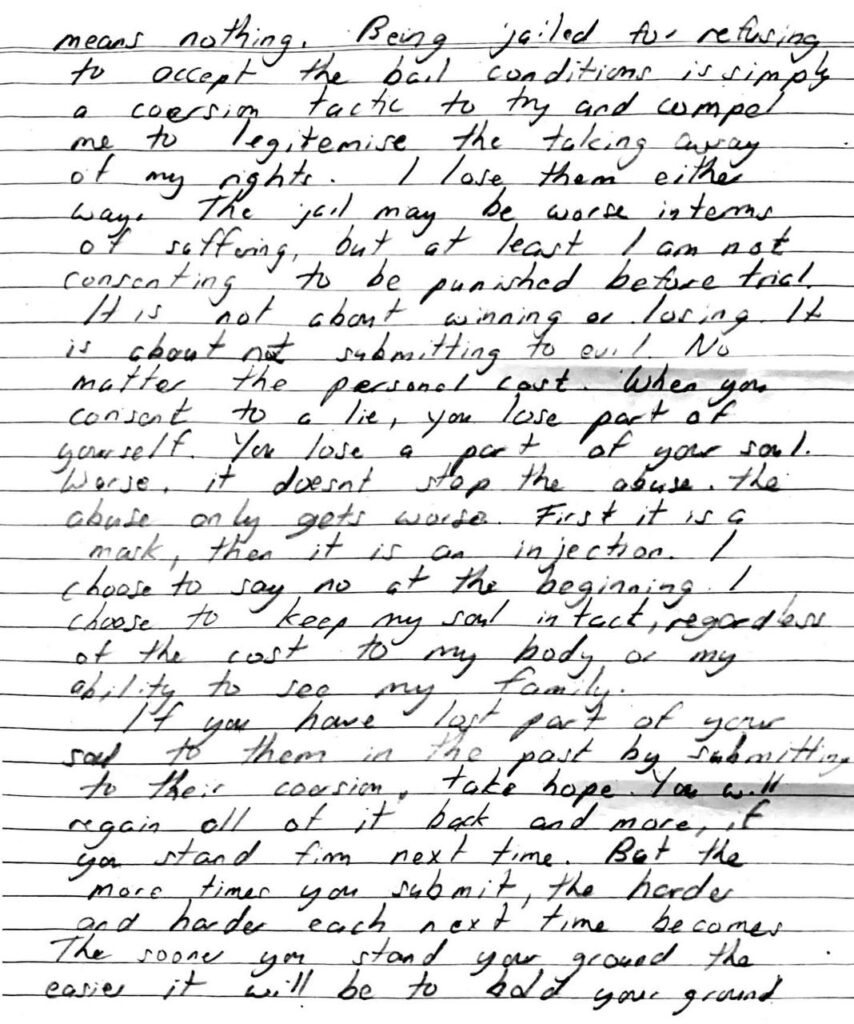 means nothing. Being jailed for refusing
to accept the bail conditions is simply
a coersion tactic to try and compel
me to legitemise the taking away
of my rights. I lose them either
way. The jail may be worse in terms
of suffering, but at least I am not
consenting to be punished before trial.
It is not about winning or losing. It
is about not submitting to evil. No
matter the personal cost. When you
consent to a lie, you lose part of
yourself. You lose a part of your soul.
Worse, it doesnt stop the abuse. the
abuse only gets worse. First it is a
mask, then it is an injection. I
choose to say no at the beginning. I
choose to keep my soul intact, regardless
of the cost to my body or my
ability to see my family.
If you have lost part of your
soul to them in the past by submitting
to their coersion, take hope. You will
regain all of it back and more, if
you stand firm next time. But the
more times you submit, the harder
and harder each next time becomes
The sooner you stand your ground the
easier it will be to hold your ground